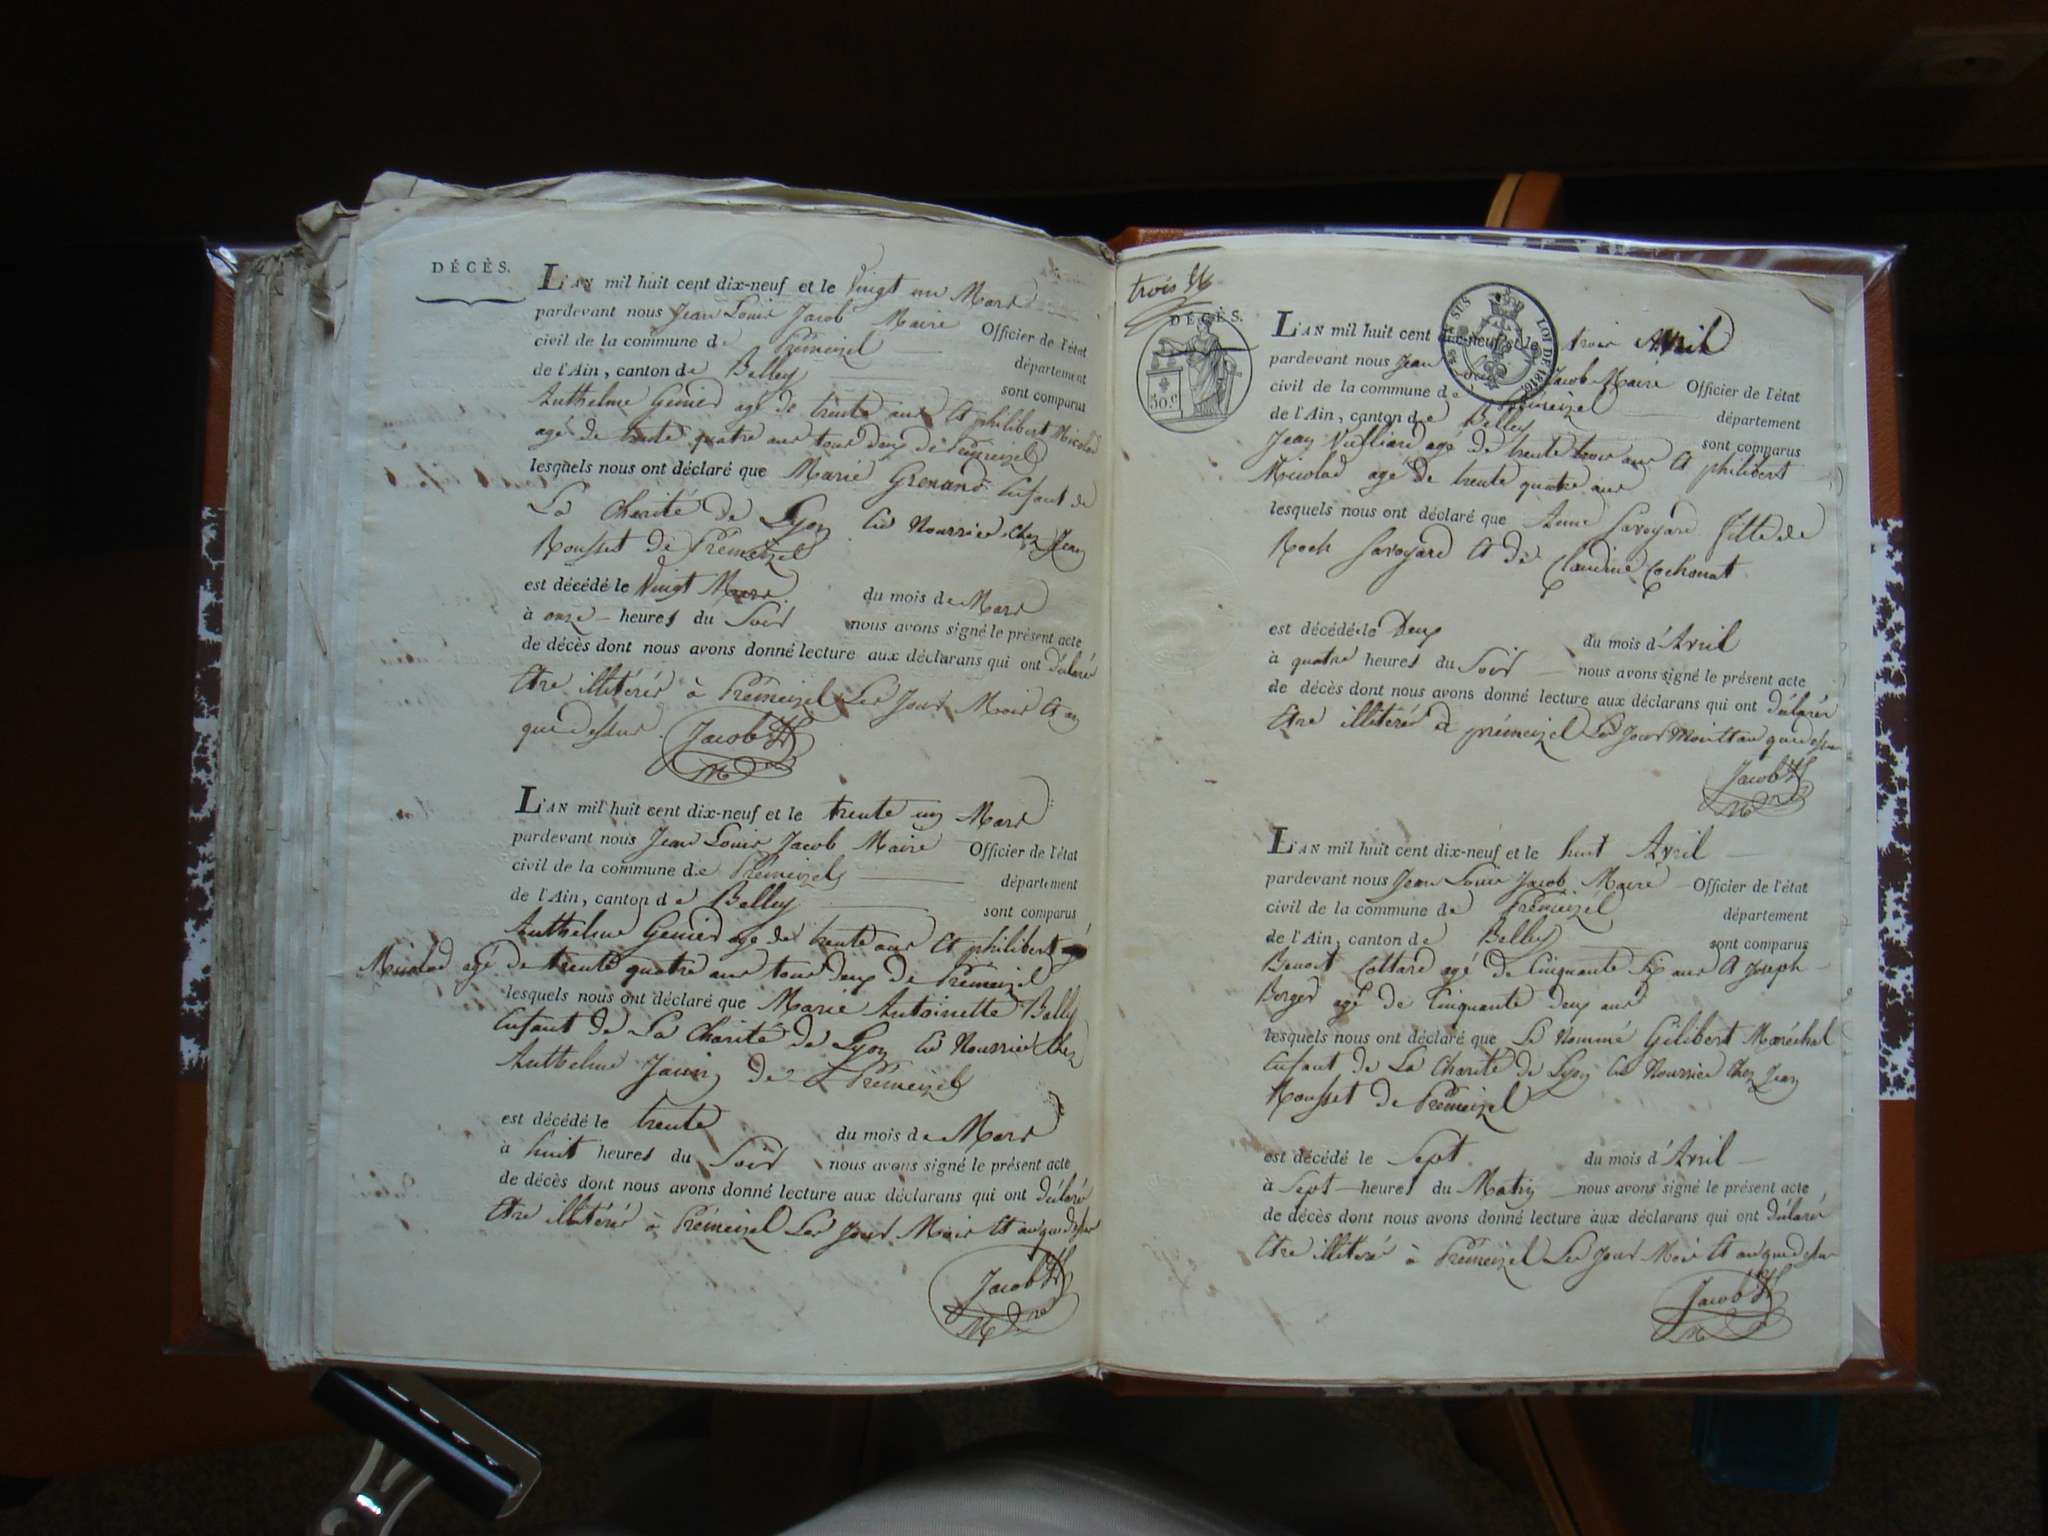 DÉCÈS.
L'AN mil huit cent dix-neuf et le Vingt un Mars
pardevant nous Jean Louis Jacob Maire Officier de l'état
civil de la commune de Prémeizel département
de l'Ain, canton de Belley sont comparus
Anthelme Genier agé de trente ans Et philibert Micolad
agé de trente quatre ans tous deux de Prémeizel
lesquels nous ont déclaré que Marie Grenand Enfant de
La Charité de Lyon En Nourrice Chez Jean
Rousset de Prémeizel
est décédé le Vingt Mars du mois de Mars
à onze heures du Soir nous avons signé le présent acte
de décès dont nous avons donné lecture aux déclarans qui ont déclaré
Etre illitérés à Prémeizel Les Jour Mois Et an
que dessus Jacob
M
L'AN mil huit cent dix-neuf et le trente un Mars
pardevant nous Jean Louis Jacob Maire Officier de l'état
civil de la commune de Prémeizel département
de l'Ain, canton de Belley sont comparus
Anthelme Genier agé de trente ans Et philibert
Micolad agé de trente quatre ans tous deux de Prémeizel
lesquels nous ont déclaré que Marie Antoinette Bally
Enfant de La Charité de Lyon En Nourrice Chez
Anthelme Janin de Prémeizel
est décédé le trente du mois de Mars
à huit heures du Soir nous avons signé le présent acte
de décès dont nous avons donné lecture aux déclarans qui ont déclaré
Etre illitérés à Prémeizel Les Jour Mois Et an que dessus
Jacob
M
trois
DÉCÈS.
50.c
EN SUS LOI DE 1816
L'AN mil huit cent dix-neuf et le trois Avril
pardevant nous Jean Jacob Maire Officier de l'état
civil de la commune de Prémeizel département
de l'Ain, canton de Belley sont comparus
Jean Vulliard agé de trente trois ans Et philibert
Micolad agé de trente quatre ans
lesquels nous ont déclaré que Anne Savoyard fille de
Roch Savoyard Et de Claudine Cochonat
est décédé le Deux du mois d'Avril
à quatre heures du Soir nous avons signé le présent acte
de décès dont nous avons donné lecture aux déclarans qui ont déclarér
Etre illitérés à prémeizel Les Jour Mois Et an que dessus
Jacob
M
L'AN mil huit cent dix-neuf et le huit Avril
pardevant nous Jean Louis Jacob Maire Officier de l'état
civil de la commune de Prémeizel département
de l'Ain, canton de Belley sont comparus
Benoit Cottard agé de Cinquante Six ans Et Joseph
Berger agé de Cinquante deux ans
lesquels nous ont déclaré que Le Nommé Gilibert Maréchal
Enfant de La Charité de Lyon En Nourrice Chez Jean
Rousset de Prémeizel
est décédé le Sept du mois d'Avril
à Sept heures du Matin nous avons signé le présent acte
de décès dont nous avons donné lecture aux déclarans qui ont déclaré
Etre illitérés à Prémeizel Les Jour Mois Et an que dessus
Jacob
M